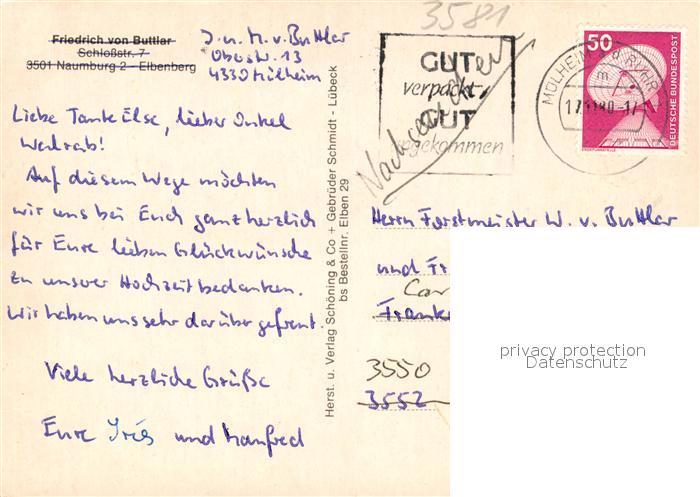 Friedrich von Buttlar
Schloßstr. 7
3501 Naumburg 2 - Elbenberg
I. u. M. v. Buttlar
Oberstr. 13
4330 Mülheim
3581
GUT
verpackt
GUT
angekommen
Nachsenden
MÜLHEIM RUHR
17.11.80-17
50
DEUTSCHE BUNDESPOST
Liebe Tante Else, lieber Onkel
Wedrab!
Auf diesem Wege möchten
wir uns bei Euch ganz herzlich
für Eure lieben Glückwünsche
zu unserer Hochzeit bedanken.
Wir haben uns sehr darüber gefreut.
Viele herzliche Grüße
Eure Iris und Manfred
Herst. u. Verlag Schöning & Co + Gebrüder Schmidt - Lübeck
bs Bestellnr. Elben 29
Herrn Forstmeister W. v. Buttlar
und Fr
Car
Franke
3550
3552
privacy protection
Datenschutz